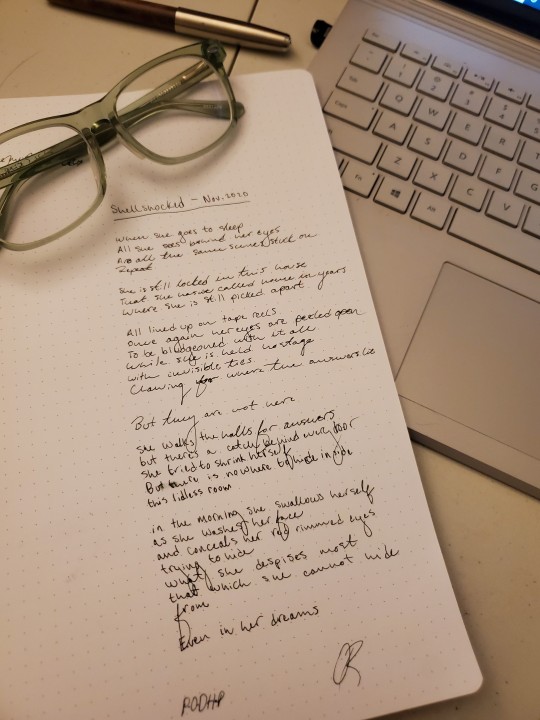 Shellshocked - Nov. 2020
When she goes to sleep
All she sees behind her eyes
Are all the same scenes stuck on
Repeat
She is still locked in this house
That she hasn't called home in years
Where she is still picked apart
All lined up on tape reels
Once again her eyes are peeled open
To be bludgeoned with it all
While she is held hostage
with invisible ties.
Clawing for where the answers lie
But they are not here
She walks the halls for answers
but there's a catch behind every door
She tried to shrink herself
But there is nowhere to hide inside
this lidless room
in the morning she swallows herself
as she washes her face
and conceals her red rimmed eyes
trying to hide
what she despises most
that which she cannot hide
from
Even in her dreams
Q W E R T
A S D F G
Z X C V